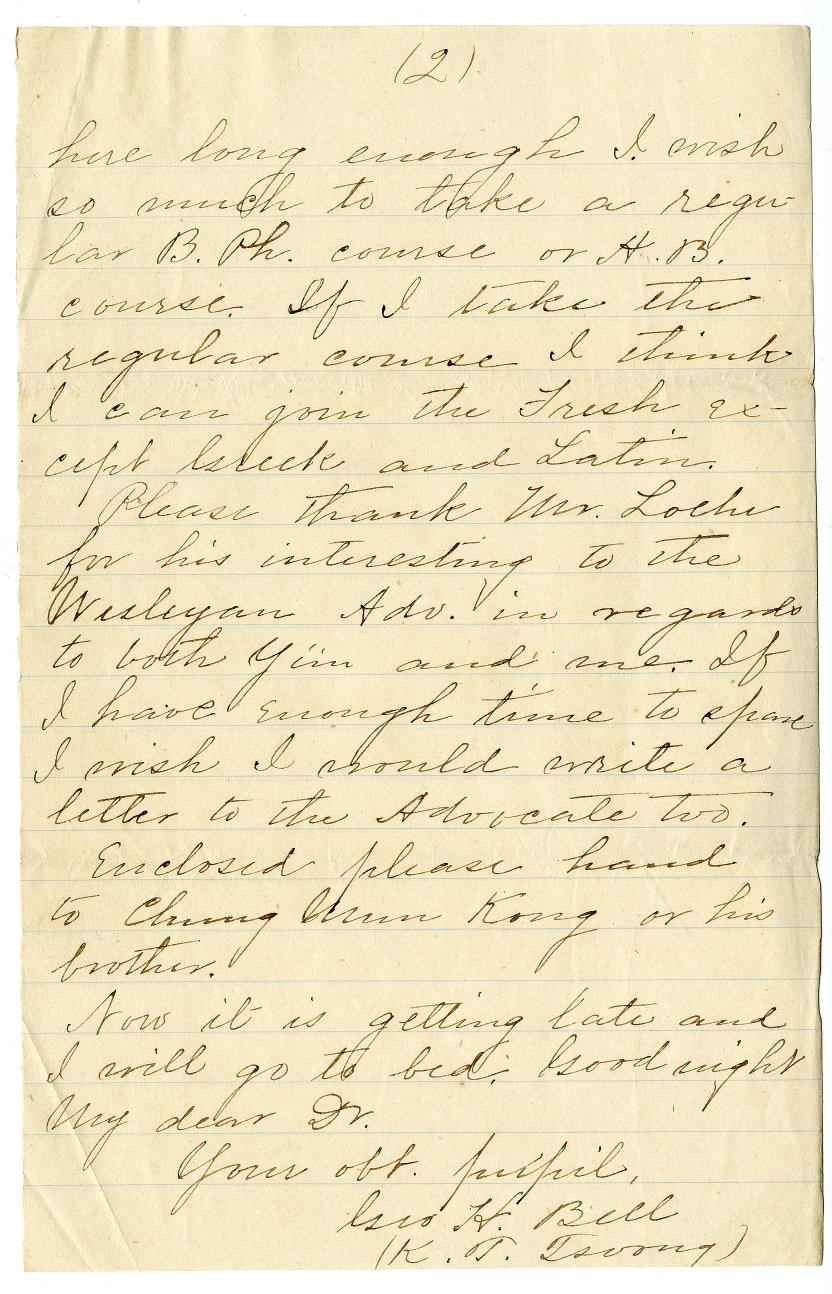 (2)
here long enough I wish
so much to take a regu-
lar B. Ph. course or A. B.
course. If I take the
regular course I think
I can join the Fresh ex-
cept Greek and Latin.
Please thank Mr. Loehr
for his interesting to the
Wesleyan Adv. in regards
to both Yün and me. If
I have enough time to spare
I wish I would write a
letter to the Advocate too.
Enclosed please hand
to Chung Mun Kong or his
brother.
Now it is getting late and
I will go to bed. Good night
My dear Dr.
Your obt. pupil,
Geo H. Bell
(K. T. Tsoong)